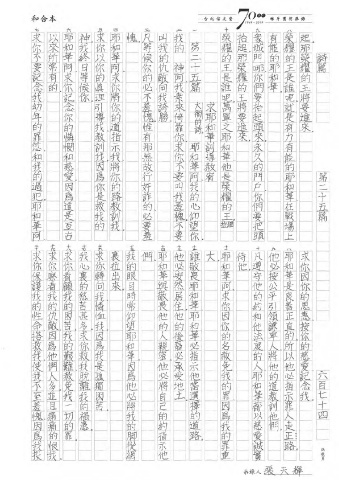 和合本
合元福之愛
70
神手靈所基督
詩篇
第二十五篇
六百七十四
起那榮耀的王將要進來
榮耀的王是誰呢就是有力有能的耶和華在戰場上
有能的耶和華
眾城門哪你們要抬起頭來永久的門戶你們要把頭
抬起那榮耀的王將要進來
榮耀的王是誰呢萬軍之耶和華他是榮耀的王細拉
求耶和華訓誨教導
第二十五篇
大衛的詩
耶和華阿我的心仰望你
我的神阿我素來倚靠你求你不要叫我羞愧不要
叫我的仇敵向我誇勝
凡等候你的必不羞愧惟有那無故行奸詐的必要羞
愧
耶和華阿求你將你的道指示我將你的路教訓我
求你以你的真理引導我教訓我因為你是救我的
神我終日等候你
耶和華阿求你記念你的憐憫和慈愛因為這是亙古
以來所常有的
求你不要記念我幼年的罪愆和我的過犯耶和華阿
求你因你的恩惠按你的慈愛記念我
耶和華是良善正直的所以他必指示罪人走正路
他必按公平引領謙卑人將他的道教訓他們
凡遵守他的約和他法度的人耶和華都以慈愛誠實
待他
耶和華阿求你因你的名赦免我的罪因為我的罪重
大
誰敬畏耶和華耶和華必指示他當選擇的道路
他必安然居住他的後裔必承受地土
耶和華與敬畏他的人親密他必將自己的約指示他
們
我的眼目時常仰望耶和華因為他必將我的腳從網
裏拉出來
求你轉向我憐恤我因為我是孤獨困苦
我心裏的愁苦甚多求你救我脫離我的禍患
求你看顧我的困苦我的艱難赦免我一切的罪
求你察看我的仇敵因為他們人多並且痛痛的恨我
求你保護我的性命搭救我使我不至羞愧因為我投
抄錄人
張云樺